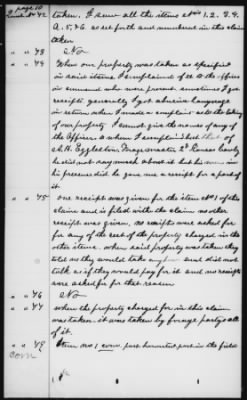 page 10
42 taken. I seen all the items Nos 1. 2. 3. 4.
5, & 6. as set forth and numbered in this claim
taken
" " 43 No
" " 44 When our property was taken as specified
in said items I complained of it to the officer
in command who were present. sometimes I got
receipts generally I got abusive language
in return when I made a complaint at the taking
of our property. I cannot give the names of any of
the Officers to whom I complained but
A. H. Eggleston, Wagonmaster 2d Kansas
he did not say much about it but his men in
his presence did he gave me a receipt for a part of
it
" " 45 one receipt was given for the item No 1 of this
claim and is filed with the claim no other
receipt was given, no receipts were asked for
for any of the rest of the property charged in the
other items. when said property was taken they
told us they would take any and did not
talk as if they would pay for it and no receipts
were asked for for that reason
" " 46 No
" " 47 when the property charged for in this claim
was taken. it was taken by forage party's all
of it.
" " 49 Item no, 1, corn, part harvested part in the field
corn